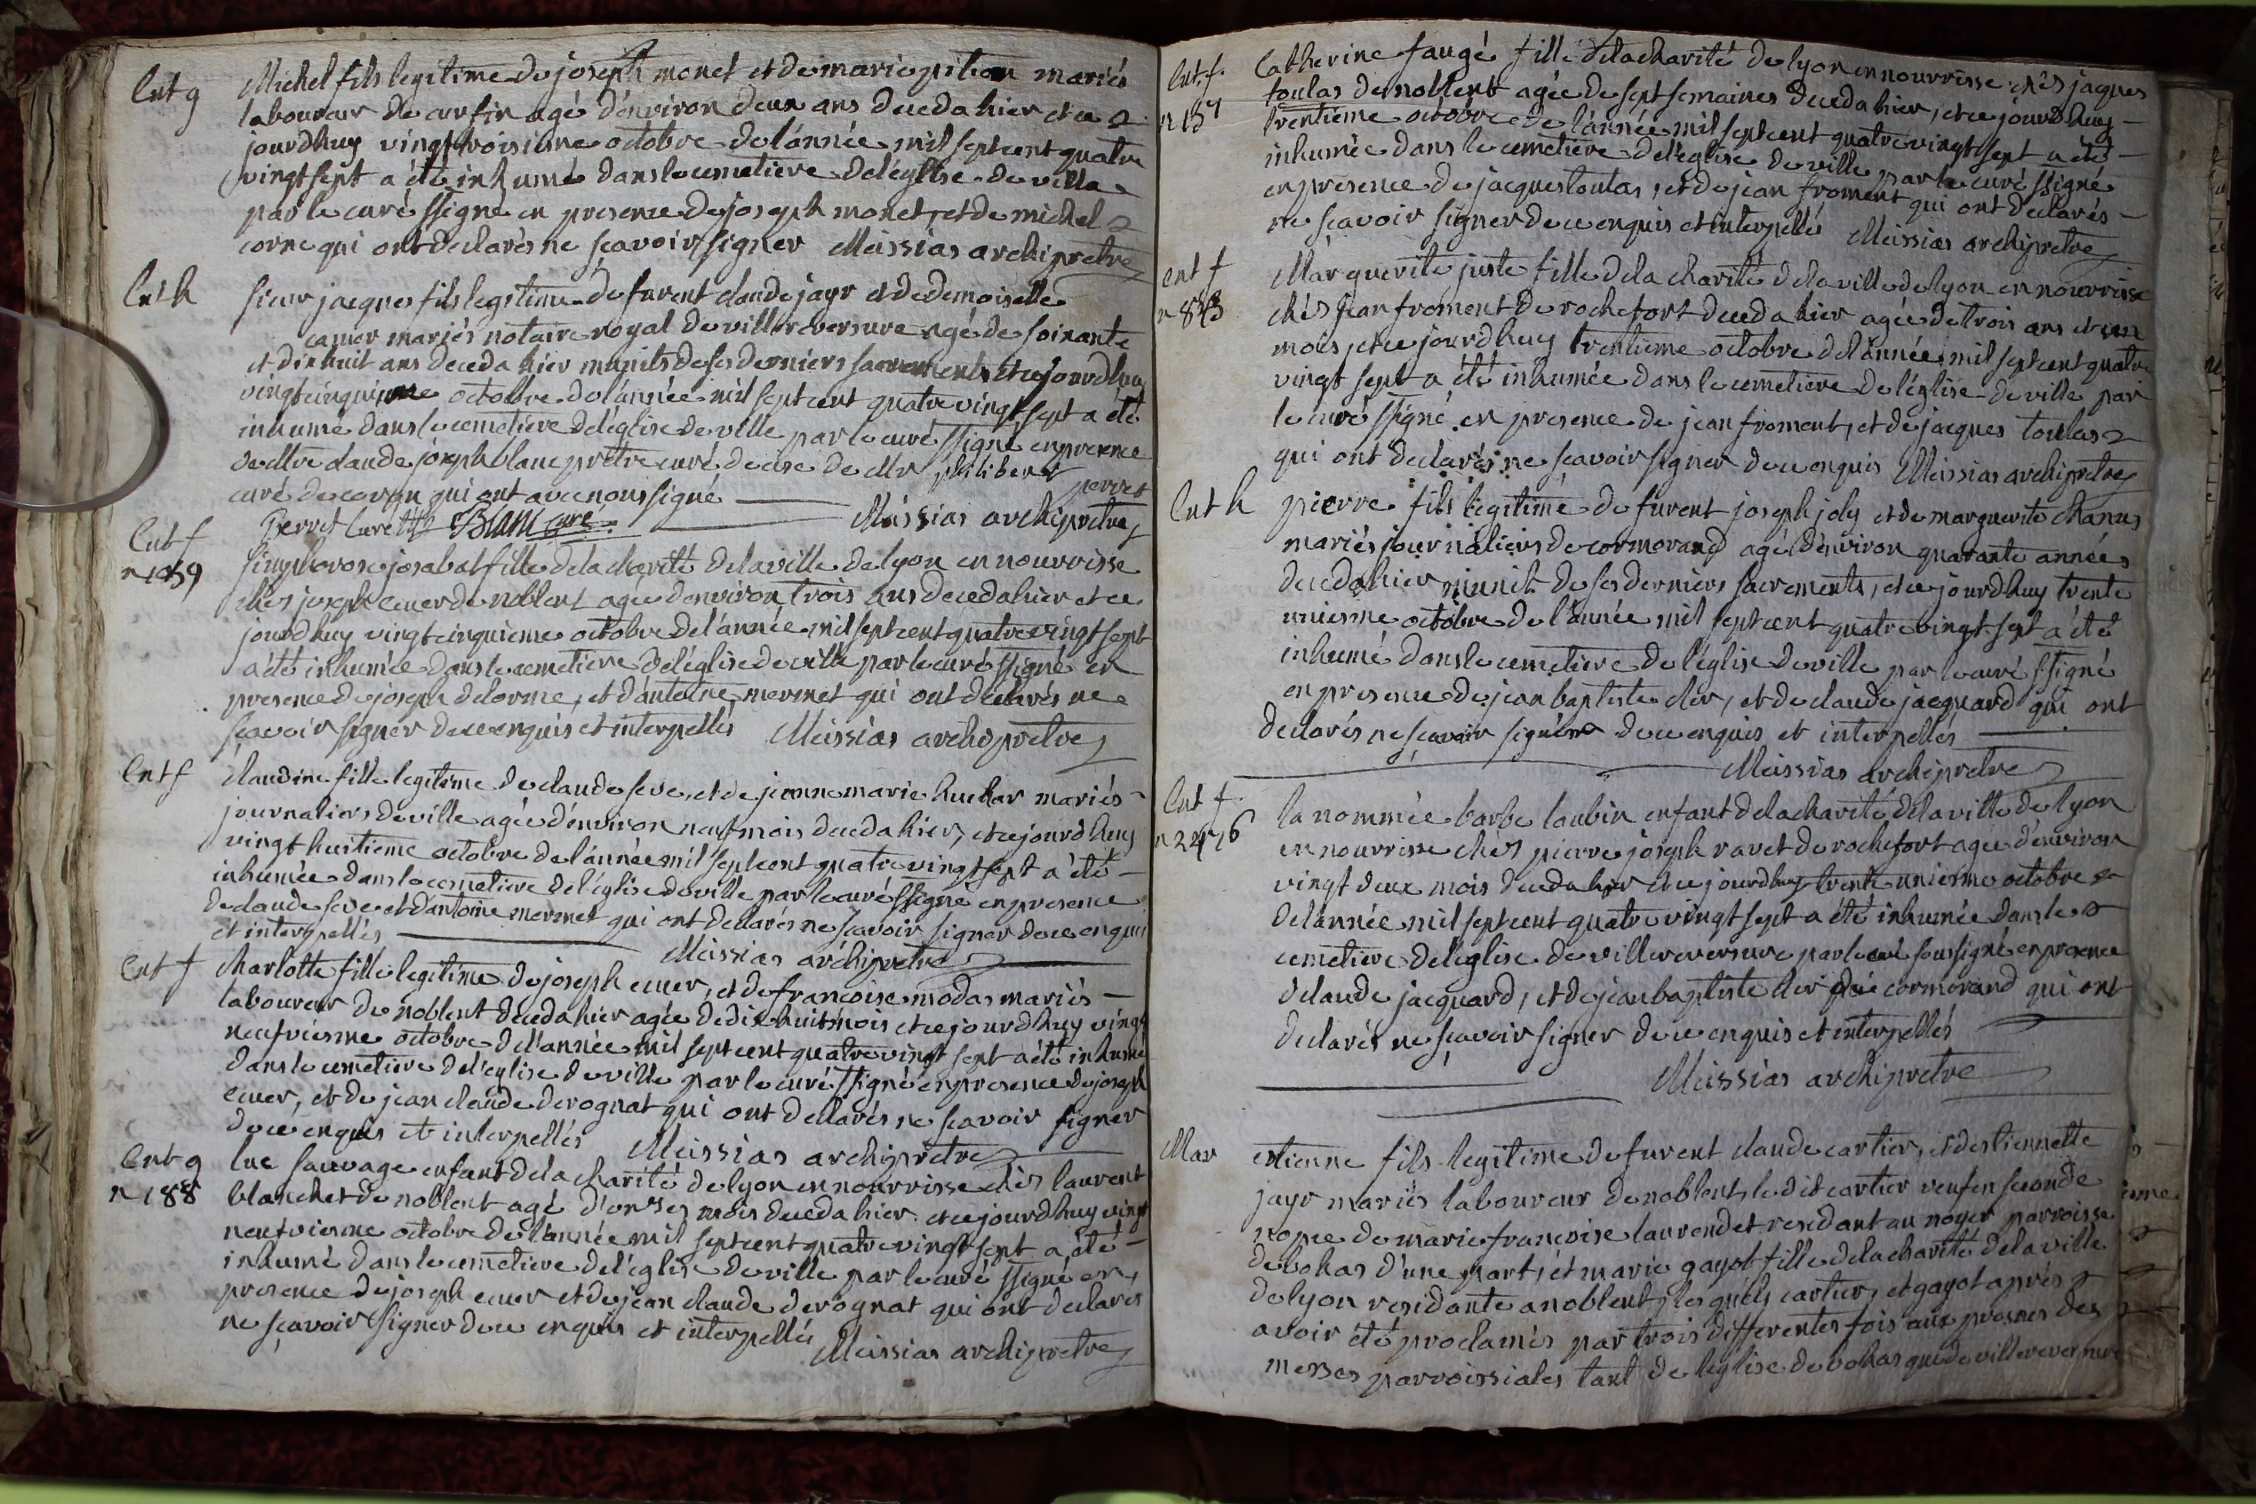 Ent g Michel fils legitime de joseph monet et de marie pition mariés
laboureur de curfin agé d'environ deux ans decedé hier et ce
jourdhuy vingt troisieme octobre de l'année mil sept cent quatre
vingt sept a été inhumé dans le cemetiere de l'église de ville
par le curé ssigné en presence de joseph monet, et de michel
corne qui ont declarés ne sçavoir signer Messias archipretre
Ent h sieur jacques fils legitime de furent claude jayr et de demoiselle
mariés notaire royal de villereversure agé de soixante
et dix huit ans decedé hier munits de ses derniers sacrements et ce jourdhuy
vingt cinquieme octobre de l'année mil sept cent quatre vingt sept a été
inhumé dans le cemetiere de l'église de ville par le curé ssigné en presence
de Mre claude joseph blanc prêtre curé de cise de Mr philibert perret
curé de qui ont avec nous signé
Perret Curé Blanc curé Messias archipretre
Ent f
n 1059 josabal fille de la charité de la ville de lyon en nourrisse
chés joseph ecuer de noblent agée d'environ trois ans decedé hier et ce
jourdhuy vingt cinquieme octobre de l'année mil sept cent quatre vingt sept
a été inhumée dans le cemetiere de l'église de ville par le curé ssigné en
presence de joseph delorme, et d'antoine mermet qui ont declarés ne
sçavoir signer de ce enquis et interpellés Messias archipretre
Ent f claudine fille legitime de claude seve, et de jeanne marie huchar mariés
journaliers de ville agée d'environ neuf mois decedé hier, et ce jourdhuy
vingt huitieme octobre de l'année mil sept cent quatre vingt sept a été
inhumée dans le cemetiere de l'église de ville par le curé ssigné en presence
de claude seve et d'antoine mermet qui ont declarés ne sçavoir signer de ce enquis
et interpellés Messias archipretre
Ent f charlotte fille legitime de joseph ecuer, et de francoise modas mariés
laboureur de noblent decedé hier agée de dix huit mois et ce jourdhuy vingt
neufviesme octobre de l'année mil sept cent quatre vingt sept a été inhumé
dans le cemetiere de l'église de ville par le curé ssigné en presence de joseph
ecuer, et de jean claude derognat qui ont declarés ne sçavoir signer
de ce enquis et interpellés Messias archipretre
Ent g luc sauvage enfant de la charité de lyon en nourrisse chés laurent
n 188 blanchet de noblent agé d'onses mois decedé hier et ce jourdhuy vingt
neufviesme octobre de l'année mil sept cent quatre vingt sept a été
inhumé dans le cemetiere de l'église de ville par le curé ssigné en
presence de joseph ecuer et de jean claude derognat qui ont declarés
ne sçavoir signer de ce enquis et interpellés
Messias archipretre
Ent f. Catherine faugé fille de la charité de lyon en nourrisse chés jaques
n 157 toulas de noblent agée de sept semaines decedé hier, et ce jourdhuy
trentieme octobre de l'année mil sept cent quatre vingt sept a été
inhumée dans le cemetiere de l'église de ville par le curé ssigné
en presence de jacques toulas, et de jean froment qui ont declarés
ne sçavoir signer de ce enquis et interpellés Messias archipretre
Ent f Marguerite juste fille de la charité de la ville de lyon en nourrisse
n 843 chés jean froment de rochefort decedé hier agée de trois ans et un
mois, et ce jourdhuy trentieme octobre de l'année mil sept cent quatre
vingt sept a été inhumée dans le cemetiere de l'église de ville par
le curé ssigné en presence de jean froment, et de jacques toulas
qui ont declarés ne sçavoir signer de ce enquis Messias archipretre
Ent h pierre fils legitime de furent joseph joly et de marguerite chanus
mariés journaliers de cormorand agé d'environ quarante années
decedé hier munit de ses derniers sacrements, et ce jourdhuy trente
uniesme octobre de l'année mil sept cent quatre vingt sept a été
inhumé dans le cemetiere de l'église de ville par le curé ssigné
en presence de jean baptiste cler, et de claude jacquard qui ont
declarés ne sçavoir signér de ce enquis et interpellés
Messias archipretre
Ent f. la nommée barbe laubin enfant de la charité de la ville de lyon
n 2476 en nourrisse chés pierre joseph ravet de rochefort agée d'environ
vingt deux mois decedé hier et ce jourdhuy trente uniesme octobre
de l'année mil sept cent quatre vingt sept a été inhumée dans le
cemetiere de l'église de villereversure par le curé soussigné en presence
de claude jacquard, et de jean baptiste cler de cormorand qui ont
declarés ne sçavoir signer de ce enquis et interpellés
Messias archipretre
Mar estienne fils legitime de furent claude cartier, et d'estiennette
jayr mariés laboureur de noblent, le dit cartier veuf en seconde
nopce de marie francoise laurendet residant au noyer parroisse
de bohas d'une part, et marie gayot fille de la charité de la ville
de lyon residante a noblent, les quels cartier, et gayot aprés
avoir été proclamés par trois differentes fois aux prosnes des
messes parroissiales tant de l'église de bohas que de villereversure